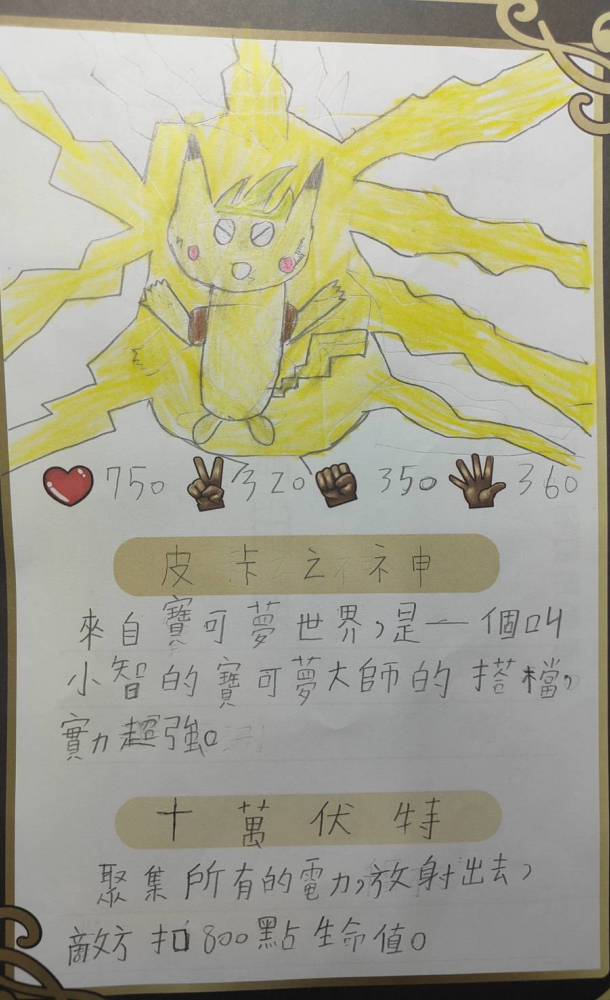 750 320 350 360
皮卡之神
來自寶可夢世界,是一個叫
小智的寶可夢大師的搭檔,
實力超強。
十萬伏特
聚集所有的電力,放射出去,
敵方扣800點生命值。